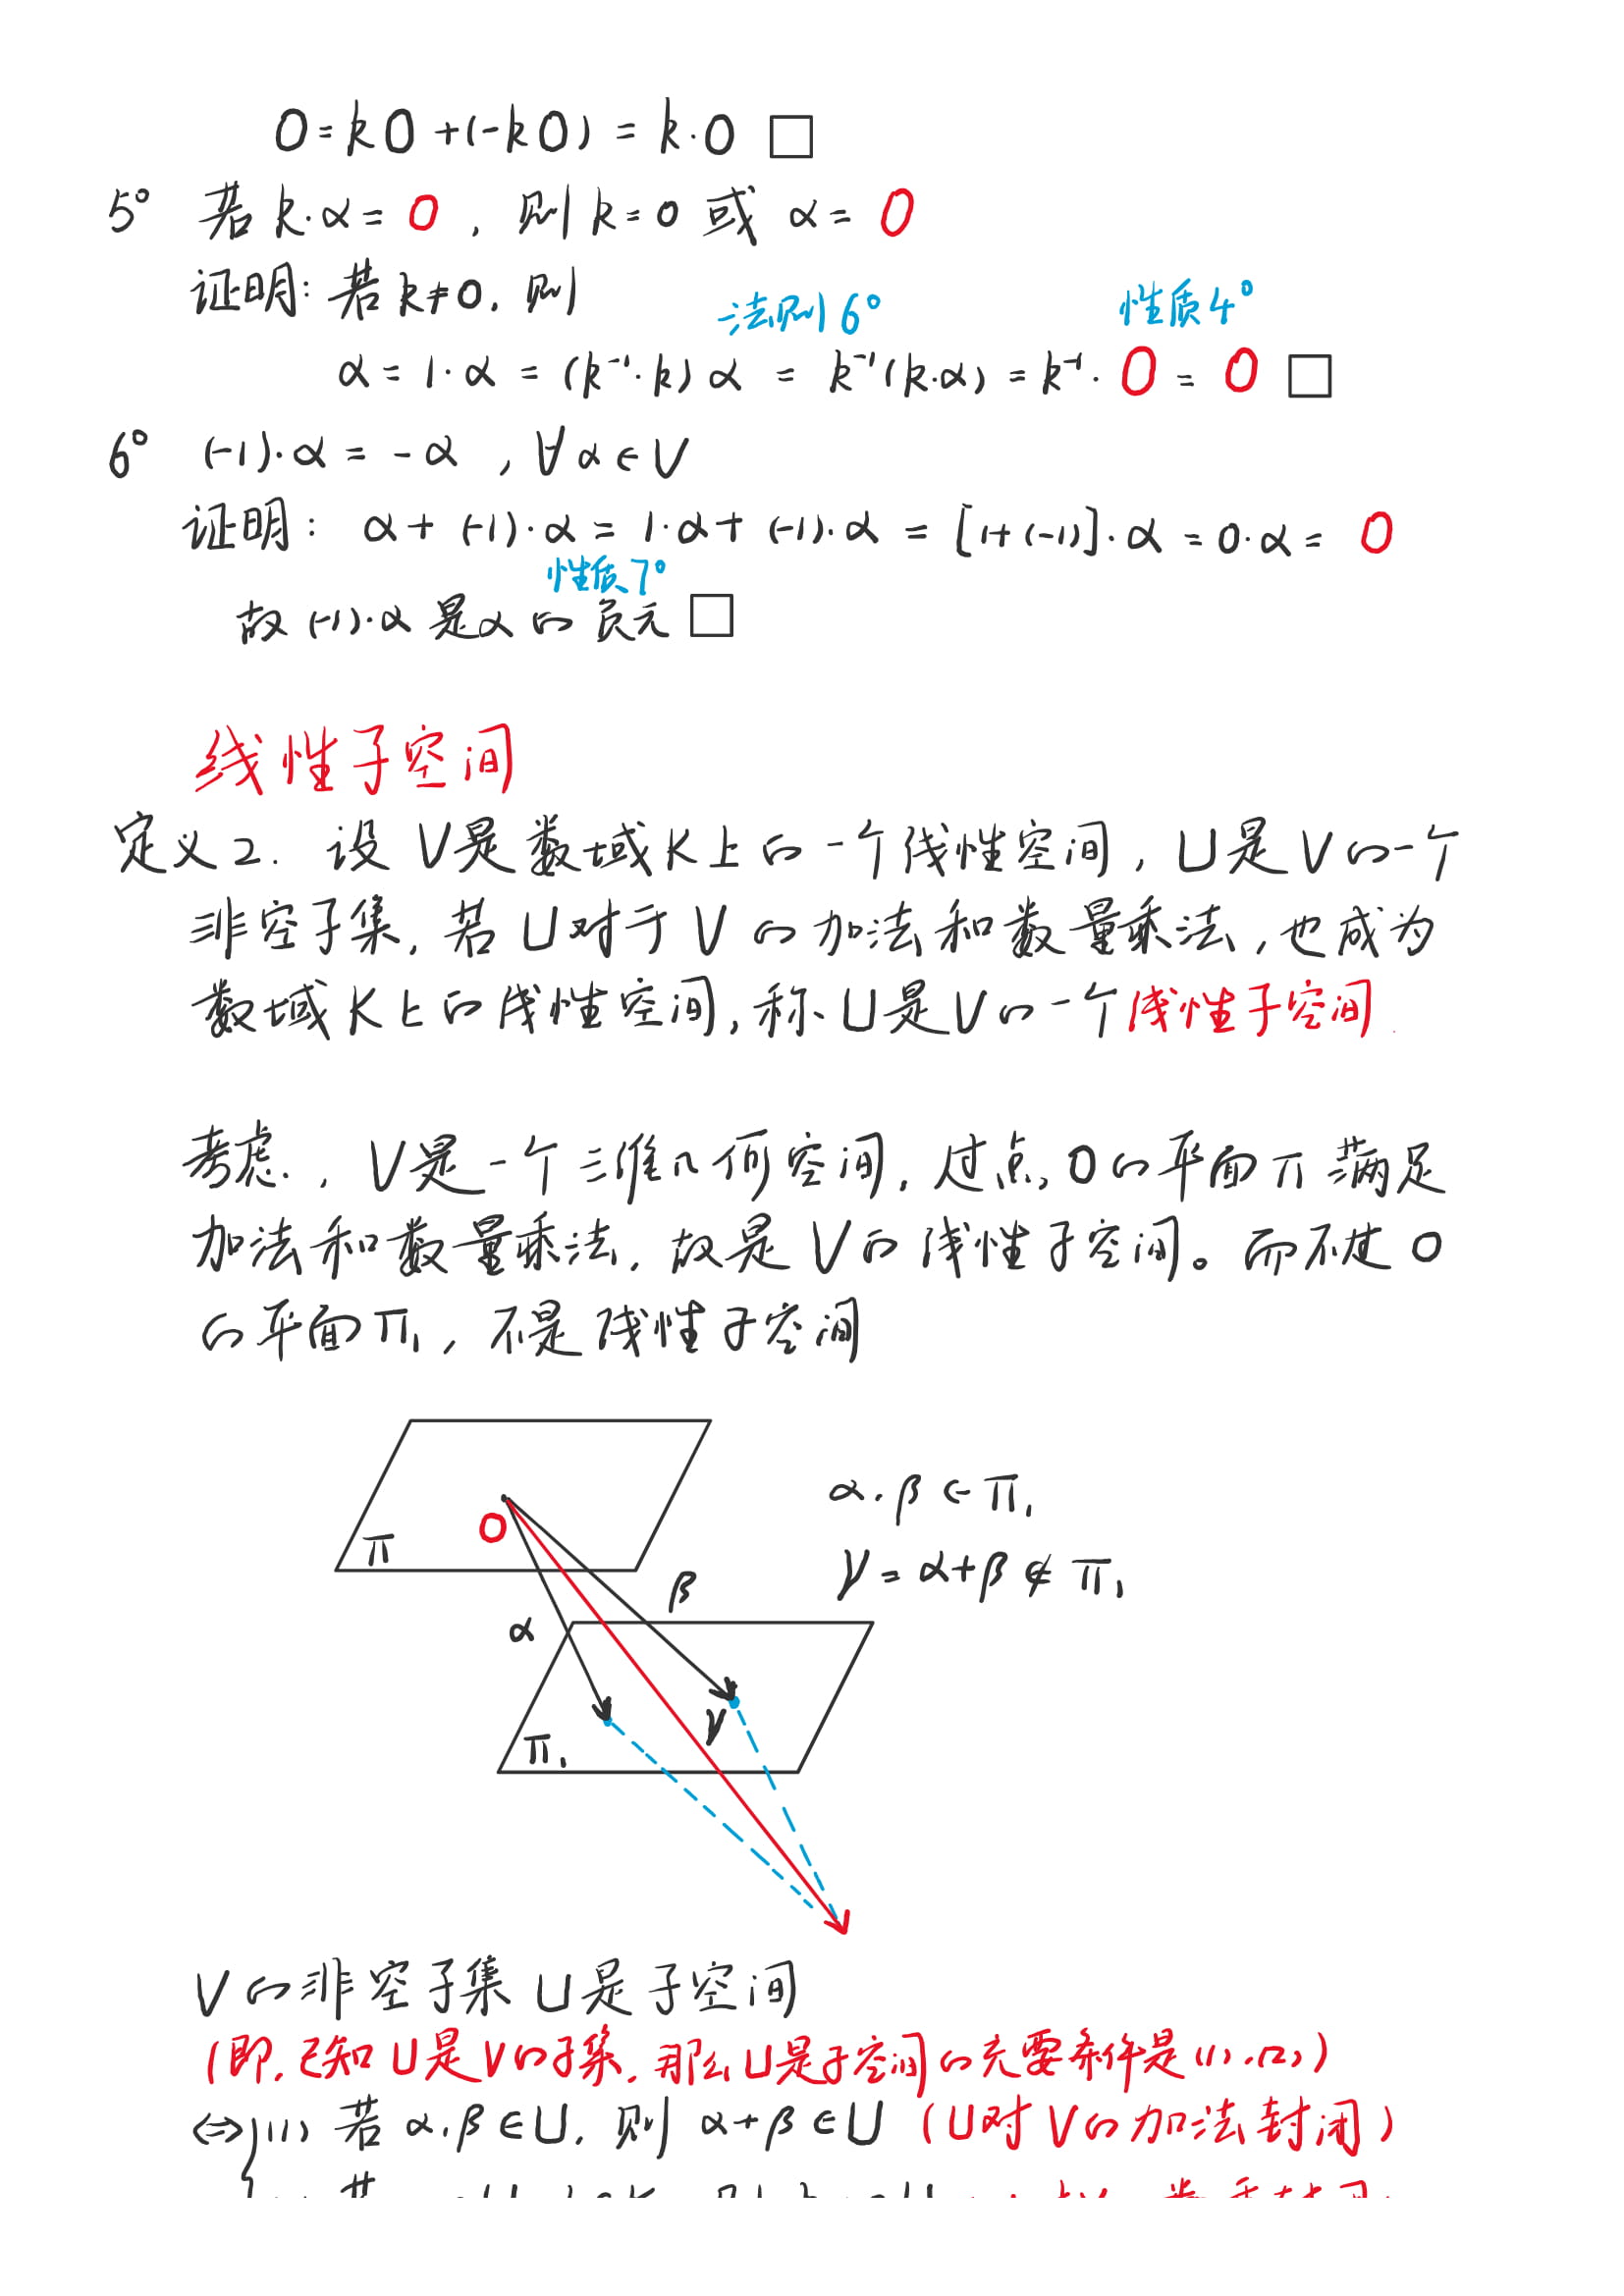 0=k0+(-k0)=k·0 □
5° 若k·α=0，则k=0或α=0
证明：若k≠0，则
法则6° 性质4°
α=1·α=(k⁻¹·k)α=k⁻¹(k·α)=k⁻¹·0=0 □
6° (-1)·α=-α，∀α∈V
证明：α+(-1)·α=1·α+(-1)·α=[1+(-1)]·α=0·α=0
性质7°
故(-1)·α是α的负元 □
线性子空间
定义2. 设V是数域K上的一个线性空间，U是V的一个
非空子集，若U对于V的加法和数量乘法，也成为
数域K上的线性空间，称U是V的一个线性子空间.
考虑，V是一个三维几何空间，过点0的平面π满足
加法和数量乘法，故是V的线性子空间。而不过0
的平面π₁，不是线性子空间
π
0
α
β
γ
π₁
α.β∈π₁
γ=α+β∉π₁
V的非空子集U是子空间
(即，已知U是V的子集，那么U是子空间的充要条件是(1).(2))
⇔(1) 若α.β∈U，则α+β∈U (U对V的加法封闭)